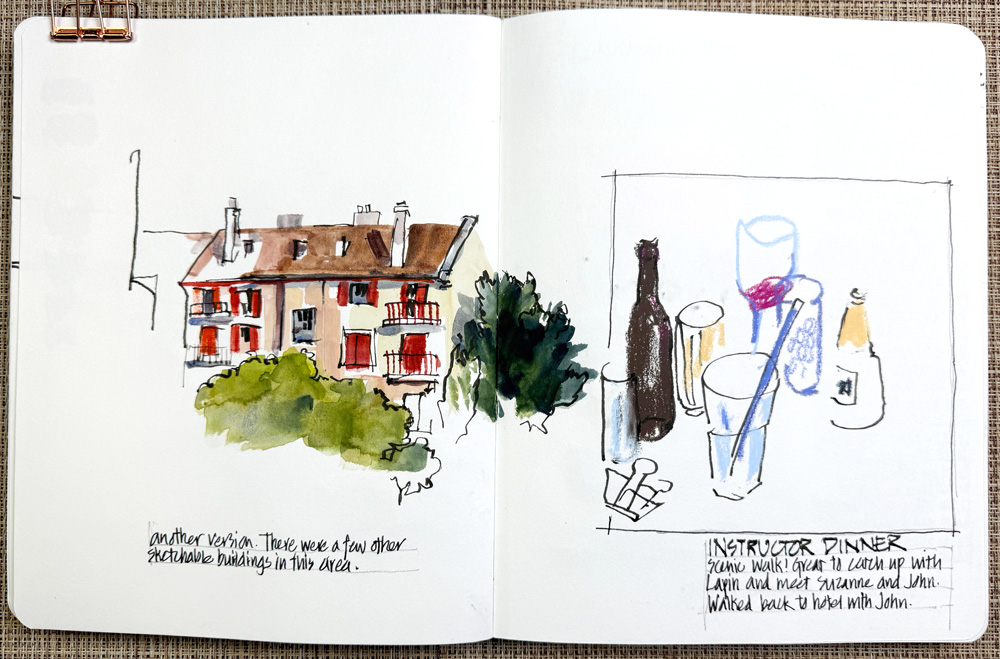 another version. There were a few other
sketchable buildings in this area.
INSTRUCTOR DINNER
Scenic walk! Great to catch up with
and meet Suzanne and John.
Walked back to hotel with John.